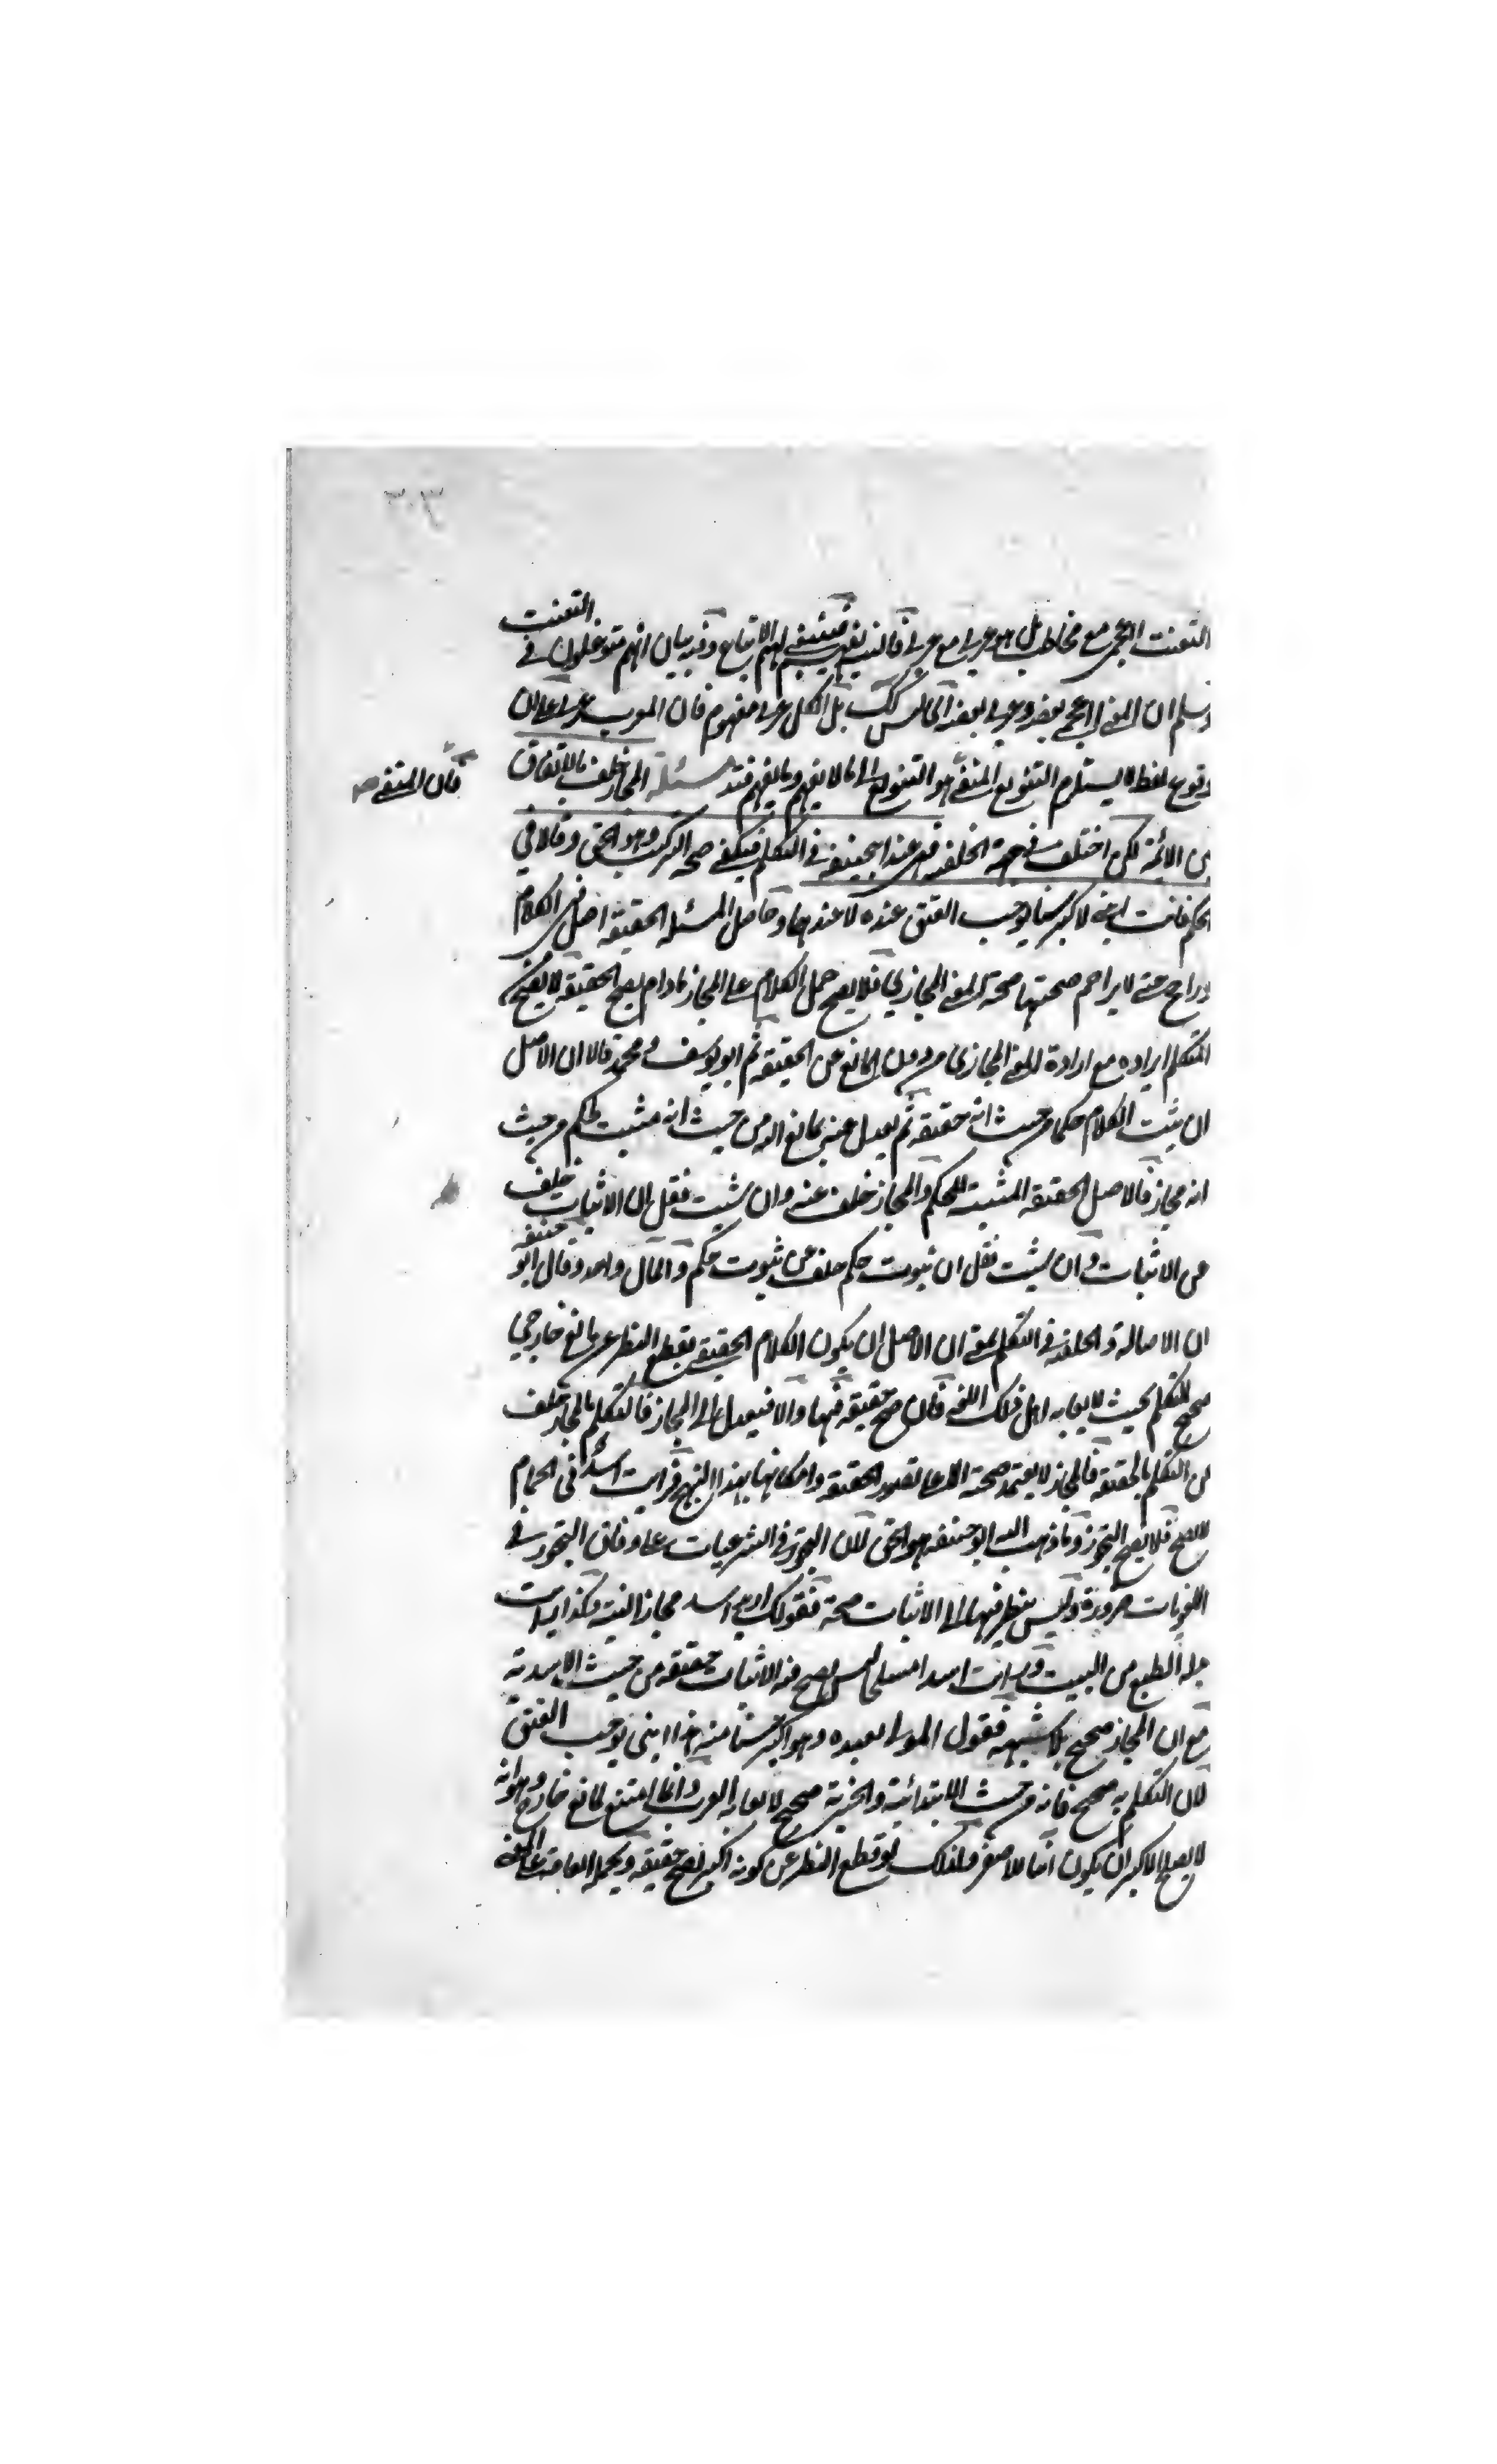 ٣٠٣
التعنت العجمي مع مخاطب بل هو عربي مع عربي فالنبي لهم الاتباع وفيه بيان انهم متوغلون في التعنت
وسلم ان المعنى اعجمي بعضه وعربي بعضه اي ليس كك بل الكل عربي مفهوم فان المعرب عربي على ان
وقوع لفظ لا يستلزم التنويع المنفي هو التنويع الى ما لا يفهم وما يفهم فتد مسئلة المجاز خلف بالاتفاق
فان المنفي صح
من الائمة لكن اختلف في جهة الخلفية فهي عند ابي حنيفة في التكلم فيكفي صحة التركيب وهو الحق وقالا في
الحكم فانت ابني لاكبر سنا يوجب العتق عنده لا عندهما وحاصل المسئلة الحقيقة اصل في الكلام
وراجح حتى لا يزاحم صحتها صحة المعنى المجازي فلا يصح حمل الكلام على المجاز ما دام يصح الحقيقة لا يصح من
المتكلم ايراده مع ارادة المعنى المجازي من دون المانع عن الحقيقة ثم ابو يوسف ومحمد قالا ان الاصل
ان يثبت الكلام حكما من حيث انه حقيقة ثم يعدل عنه بمانع اليه من حيث انه مثبت لحكم من حيث
انه مجاز فالاصل الحقيقة المثبتة للحكم والمجاز خلف عنه وان شئت فقل ان الاثبات خلف
عن الاثبات وان شئت فقل ان ثبوت حكم خلف عن ثبوت حكم والمآل واحد وقال ابو حنيفة
ان الاصالة والخلفية في التكلم بمعنى ان الاصل ان يكون الكلام الحقيقي بقطع النظر عن مانع خارجي
صحيح التكلم بحيث لا يعابه اهل ذلك اللغة فان صح حقيقة فبها والا فيعدل الى المجاز فالتكلم بالمجاز خلف
عن التكلم بالحقيقة فالمجاز لا يعتمد صحته الا على تصور الحقيقة وامكانها بهذا النهج فرايت اسدا في الحمام
لا يصح فلا يصح التجوز وما ذهب اليه ابو حنيفة هو الحق لان التجوز في الشرعيات على وفاق التجوز في
اللغويات ضرورة وليس ينظر فيها الى الاثبات صحة فقولك اسد مجاز البتة وهكذا رايت
من البيت ورايت اسدا ليس يصح فيه الاثبات حقيقة من حيث الاسدية
مع ان المجاز صحيح بلا شبهة فقول المولى لعبده وهو اكبر سنا منه هذا ابني يوجب العتق
لان التكلم به صحيح فانه من حيث الابتدائية والخبرية صحيح لا يعابه العرب وانما امتنع لمانع خارج وهو انه
لا يصح الاكبر ان يكون ابنا للاصغر ولذلك لو قطع النظر عن كونه اكبر يصح حقيقة ويحمله العامة على اللغة